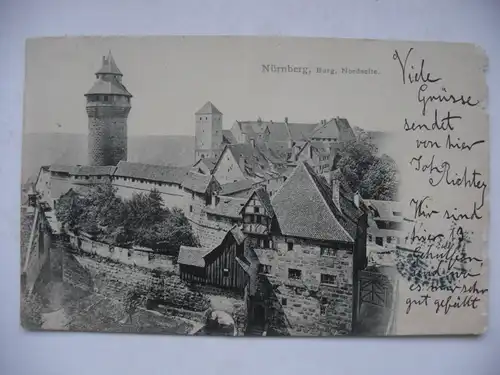 Nürnberg, Burg, Nordseite.
Viele
Grüsse
sendet
von hier
Joh Richter
Wir sind
hier
und
es hier sehr
gut gefällt